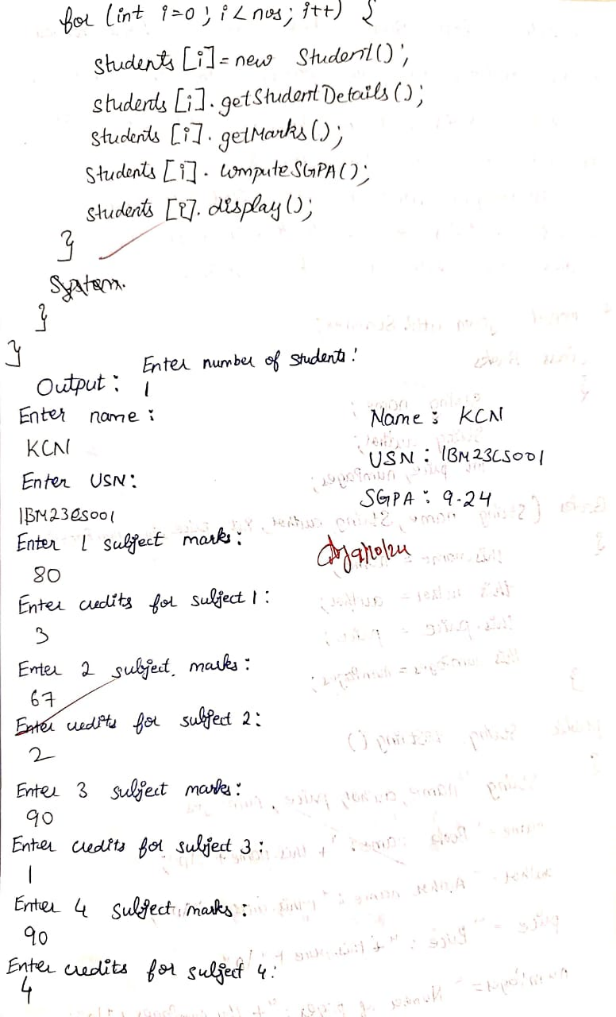 for (int i=0; i<nos; i++) {
students [i] = new Student();
students [i]. getStudentDetails ();
students [i]. getMarks ();
students [i]. computeSGPA ();
students [i]. display ();
}
System.
}
}
Output: Enter number of students:
1
Enter name:
KCN
Enter USN:
1BM23CS001
Enter 1 subject marks:
80
Enter credits for subject 1:
3
Enter 2 subject marks:
67
Enter credits for subject 2:
2
Enter 3 subject marks:
90
Enter credits for subject 3:
1
Enter 4 subject marks:
90
Enter credits for subject 4:
4
Name: KCN
USN: 1BM23CS001
SGPA: 9.24